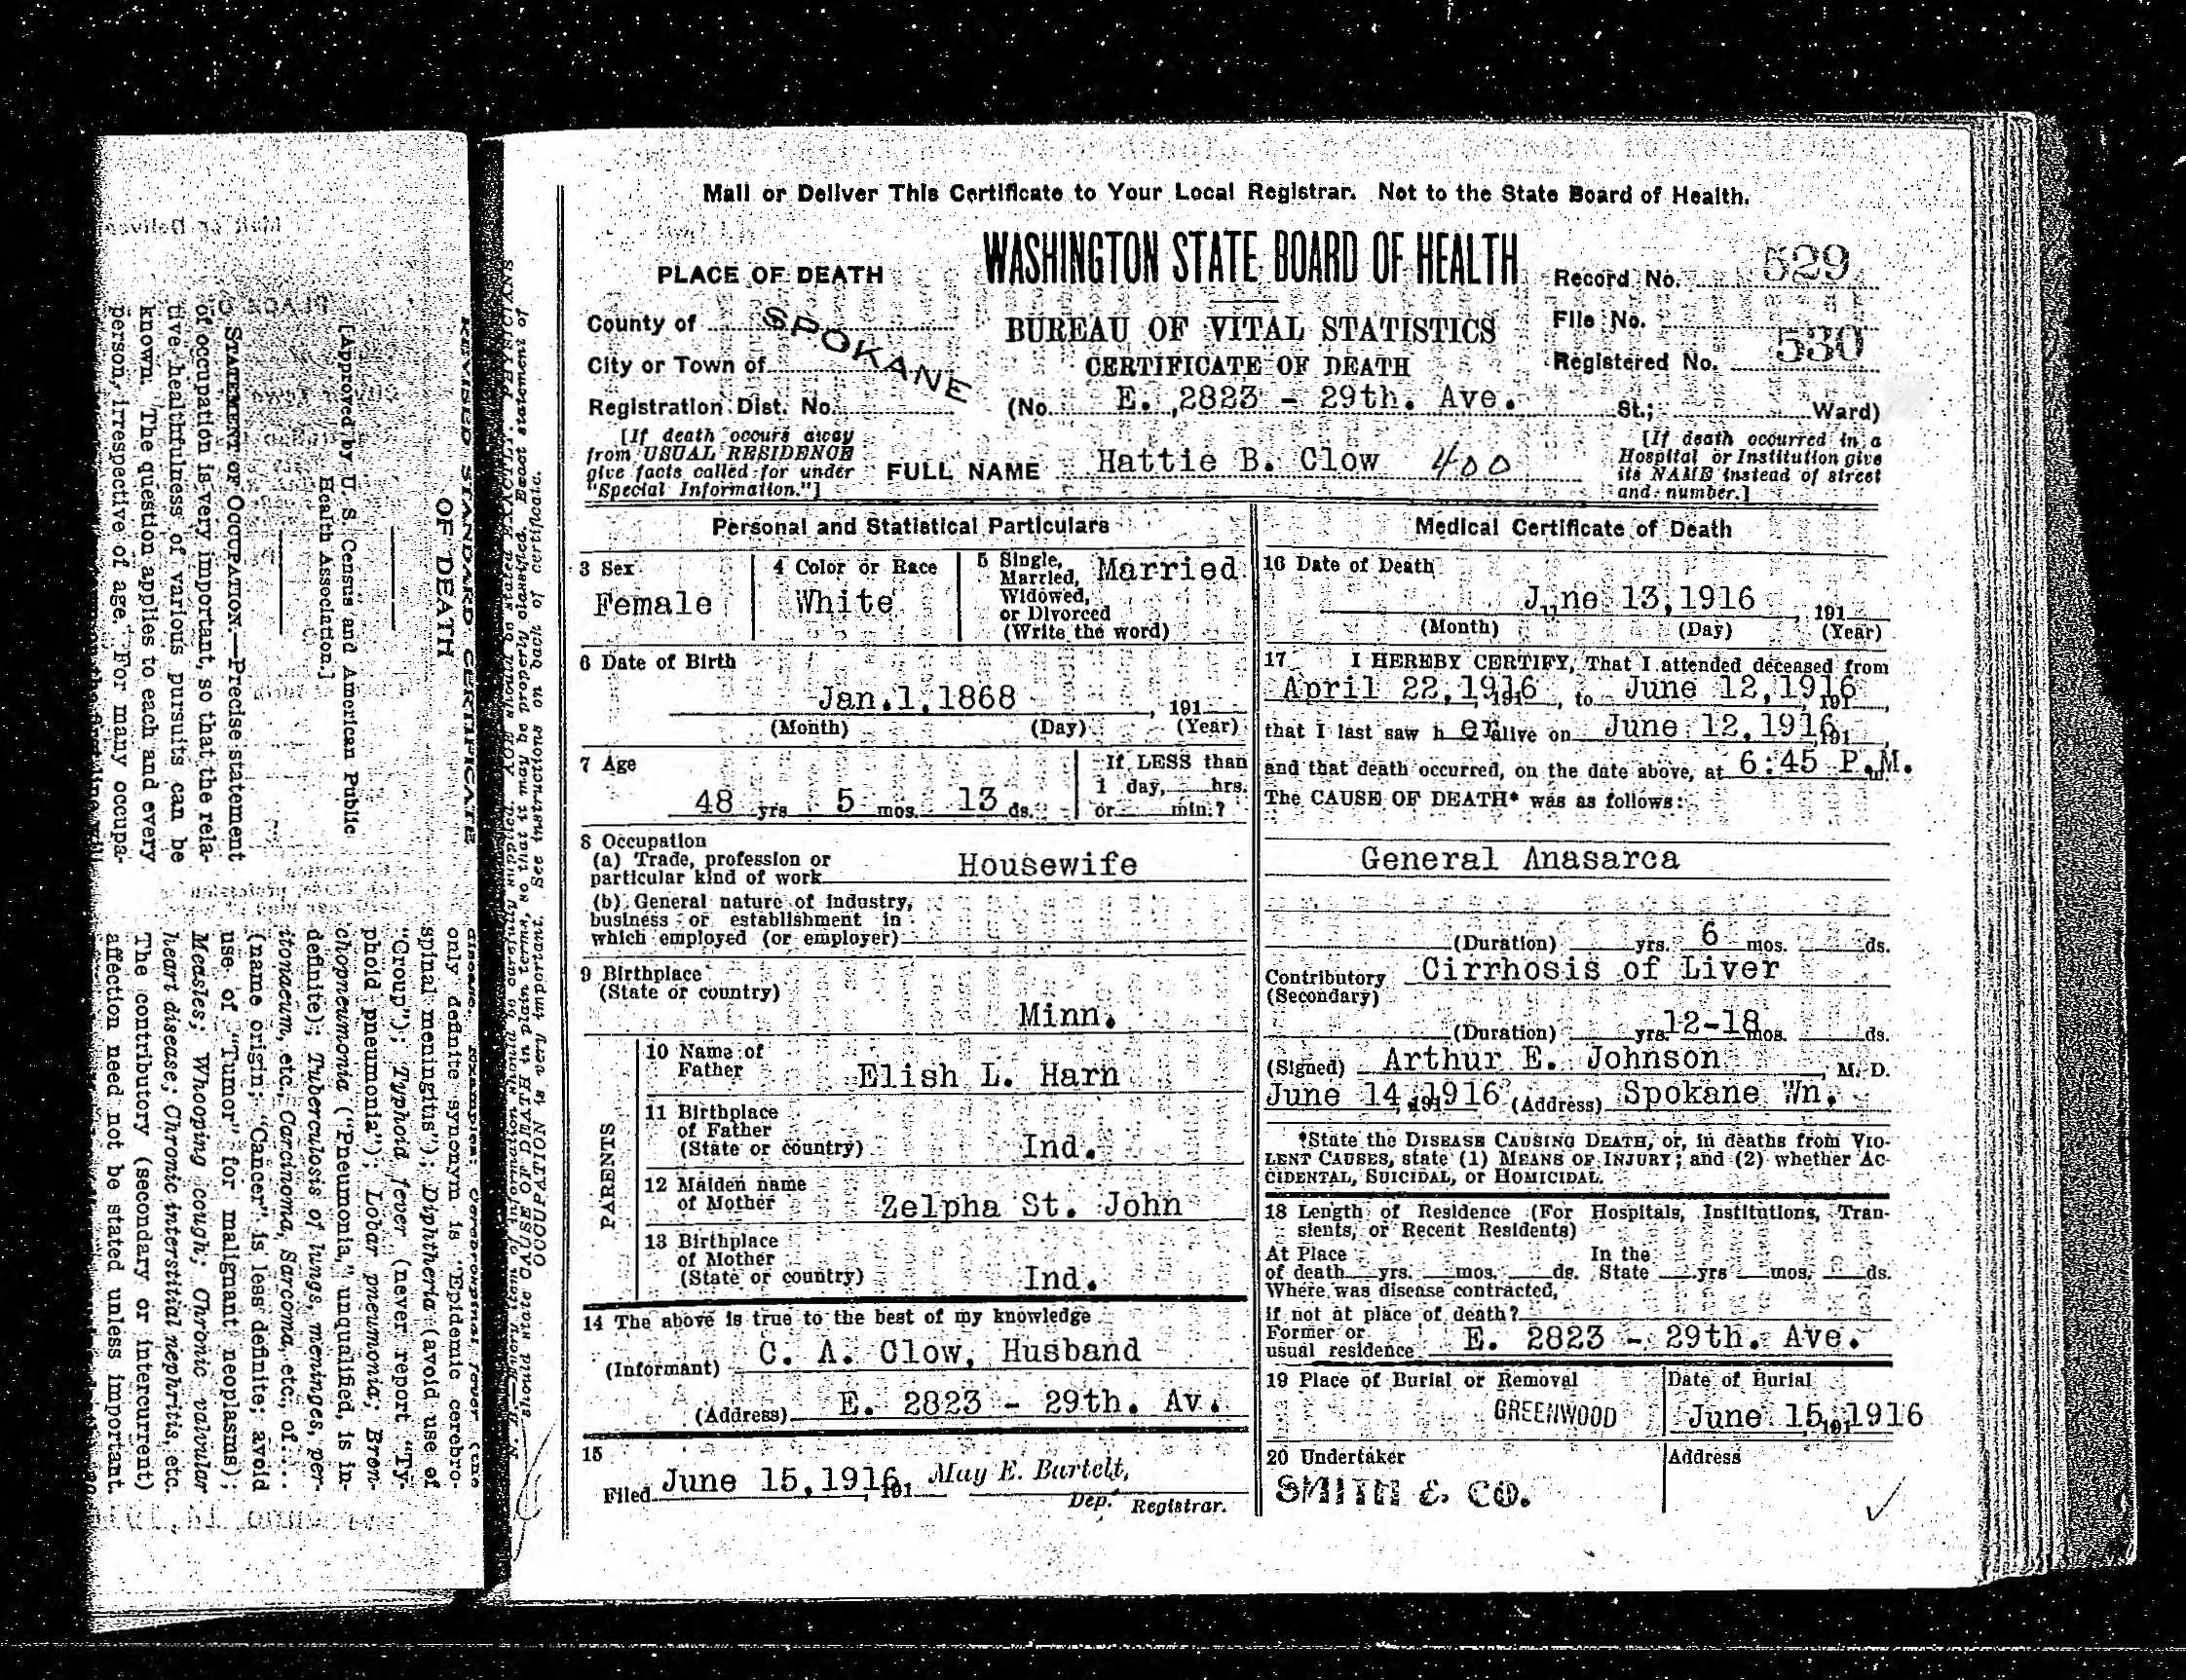 Mail or Deliver This Certificate to Your Local Registrar. Not to the State Board of Health.
PLACE OF DEATH
WASHINGTON STATE BOARD OF HEALTH
Record No. 529
County of SPOKANE
BUREAU OF VITAL STATISTICS
File No.
City or Town of
CERTIFICATE OF DEATH
Registered No. 530
Registration Dist. No.
(No. E. 2823 - 29th. Ave. St.; Ward)
[If death occurs away
from USUAL RESIDENCE
give facts called for under
"Special Information."]
FULL NAME Hattie B. Clow 400
[If death occurred in a
Hospital or Institution give
its NAME instead of street
and number.]
Personal and Statistical Particulars
3 Sex
Female
4 Color or Race
White
5 Single,
Married,
Widowed,
or Divorced
(Write the word)
Married
6 Date of Birth
Jan.1,1868 , 191
(Month) (Day) (Year)
7 Age
48 yrs 5 mos. 13 ds.
If LESS than
1 day, hrs.
or min.?
8 Occupation
(a) Trade, profession or
particular kind of work Housewife
(b) General nature of industry,
business or establishment in
which employed (or employer)
9 Birthplace
(State or country)
Minn.
PARENTS
10 Name of
Father Elish L. Harn
11 Birthplace
of Father
(State or country) Ind.
12 Maiden name
of Mother Zelpha St. John
13 Birthplace
of Mother
(State or country) Ind.
14 The above is true to the best of my knowledge
(Informant) C. A. Clow, Husband
(Address) E. 2823 - 29th. Av.
15
Filed June 15,1916, 191 May E. Bartelt,
Dep. Registrar.
Medical Certificate of Death
16 Date of Death
June 13,1916 , 191
(Month) (Day) (Year)
17 I HEREBY CERTIFY, That I attended deceased from
April 22,1916 191 , to June 12,1916 191 ,
that I last saw h er alive on June 12,1916, 191 ,
and that death occurred, on the date above, at 6:45 P.M. m.
The CAUSE OF DEATH* was as follows:
General Anasarca
(Duration) yrs. 6 mos. ds.
Contributory Cirrhosis of Liver
(Secondary)
(Duration) yrs. 12-18 mos. ds.
(Signed) Arthur E. Johnson , M. D.
June 14, 191 1916 (Address) Spokane Wn.
*State the DISEASE CAUSING DEATH, or, in deaths from VIO-
LENT CAUSES, state (1) MEANS OF INJURY; and (2) whether AC-
CIDENTAL, SUICIDAL, or HOMICIDAL.
18 Length of Residence (For Hospitals, Institutions, Tran-
sients, or Recent Residents)
At Place In the
of death yrs. mos. ds. State yrs mos. ds.
Where was disease contracted,
if not at place of death?
Former or
usual residence E. 2823 - 29th. Ave.
19 Place of Burial or Removal
GREENWOOD
Date of Burial
June 15, 191 1916
20 Undertaker
SMITH & CO.
Address
REVISED STANDARD CERTIFICATE
OF DEATH
[Approved by U. S. Census and American Public
Health Association.]
STATEMENT OF OCCUPATION.—Precise statement
of occupation is very important, so that the rela-
tive healthfulness of various pursuits can be
known. The question applies to each and every
person, irrespective of age. For many occupa-
only definite synonym is "Epidemic cerebro-
spinal meningitis"); Diphtheria (avoid use of
"Croup"); Typhoid fever (never report "Ty-
phoid pneumonia"); Lobar pneumonia; Bron-
chopneumonia ("Pneumonia," unqualified, is in-
definite); Tuberculosis of lungs, meninges, per-
itonaeum, etc., Carcinoma, Sarcoma, etc., of.....
(name origin; "Cancer" is less definite; avoid
use of "Tumor" for malignant neoplasms);
Measles; Whooping cough; Chronic valvular
heart disease; Chronic interstitial nephritis, etc.
The contributory (secondary or intercurrent)
affection need not be stated unless important.
should state CAUSE OF DEATH in plain terms, so that it may be properly classified. Exact statement of
OCCUPATION is very important. See instructions on back of certificate.